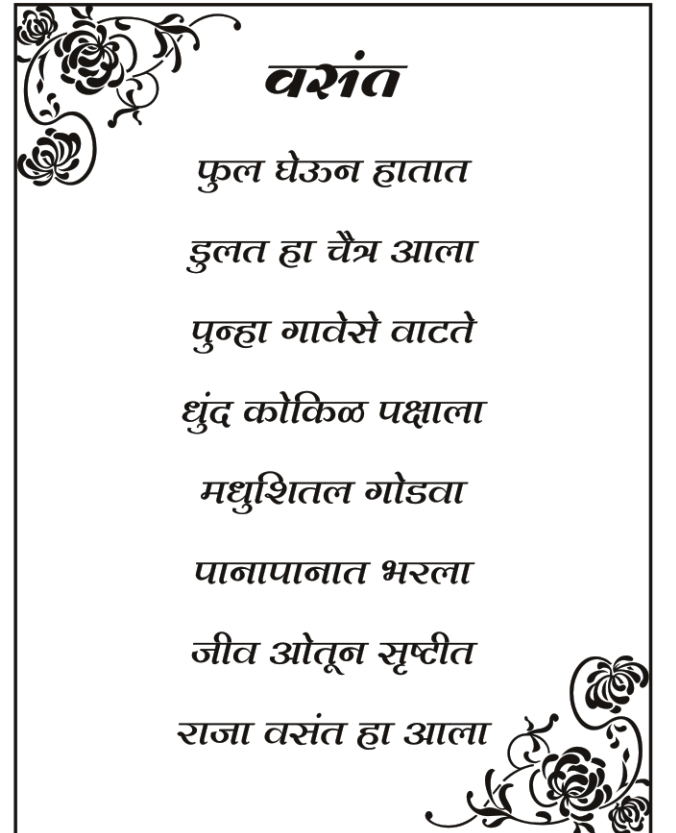 वसंत
फुल घेऊन हातात
डुलत हा चैत्र आला
पुन्हा गावेसे वाटते
धुंद कोकिळ पक्षाला
मधुशितल गोडवा
पानापानात भरला
जीव ओतून सृष्टीत
राजा वसंत हा आला